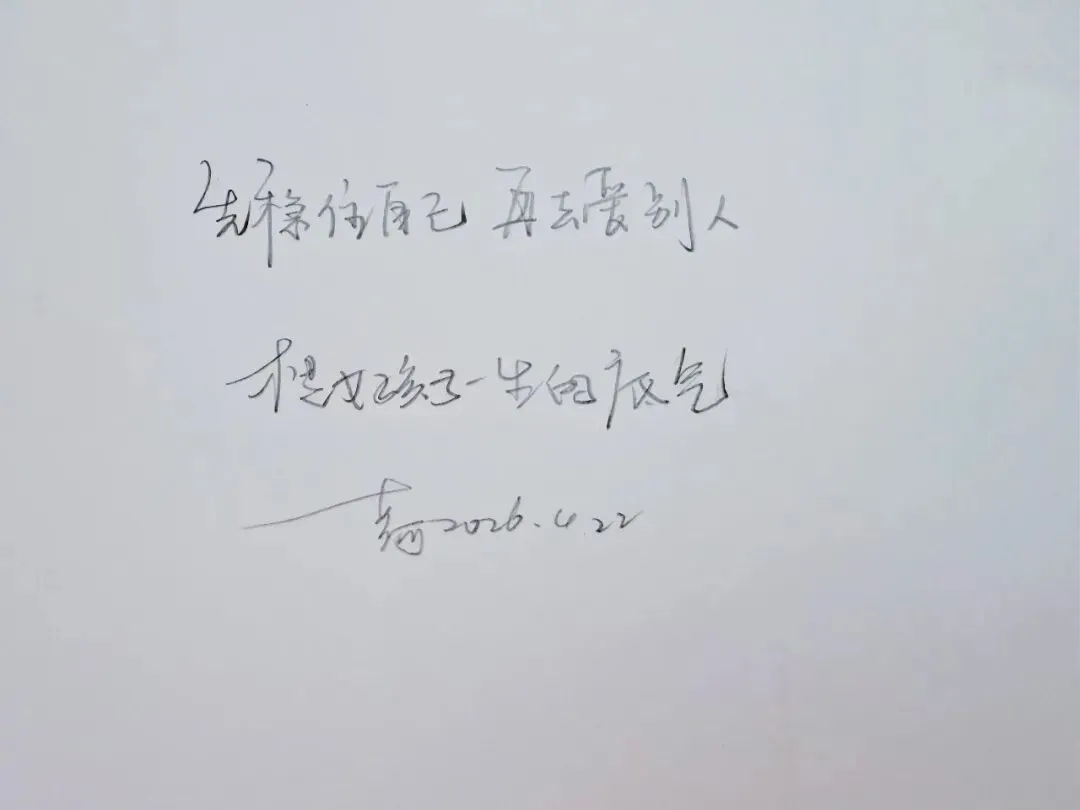 先稳住自己 再去爱别人
是女孩子一生的底气
2026.4.22